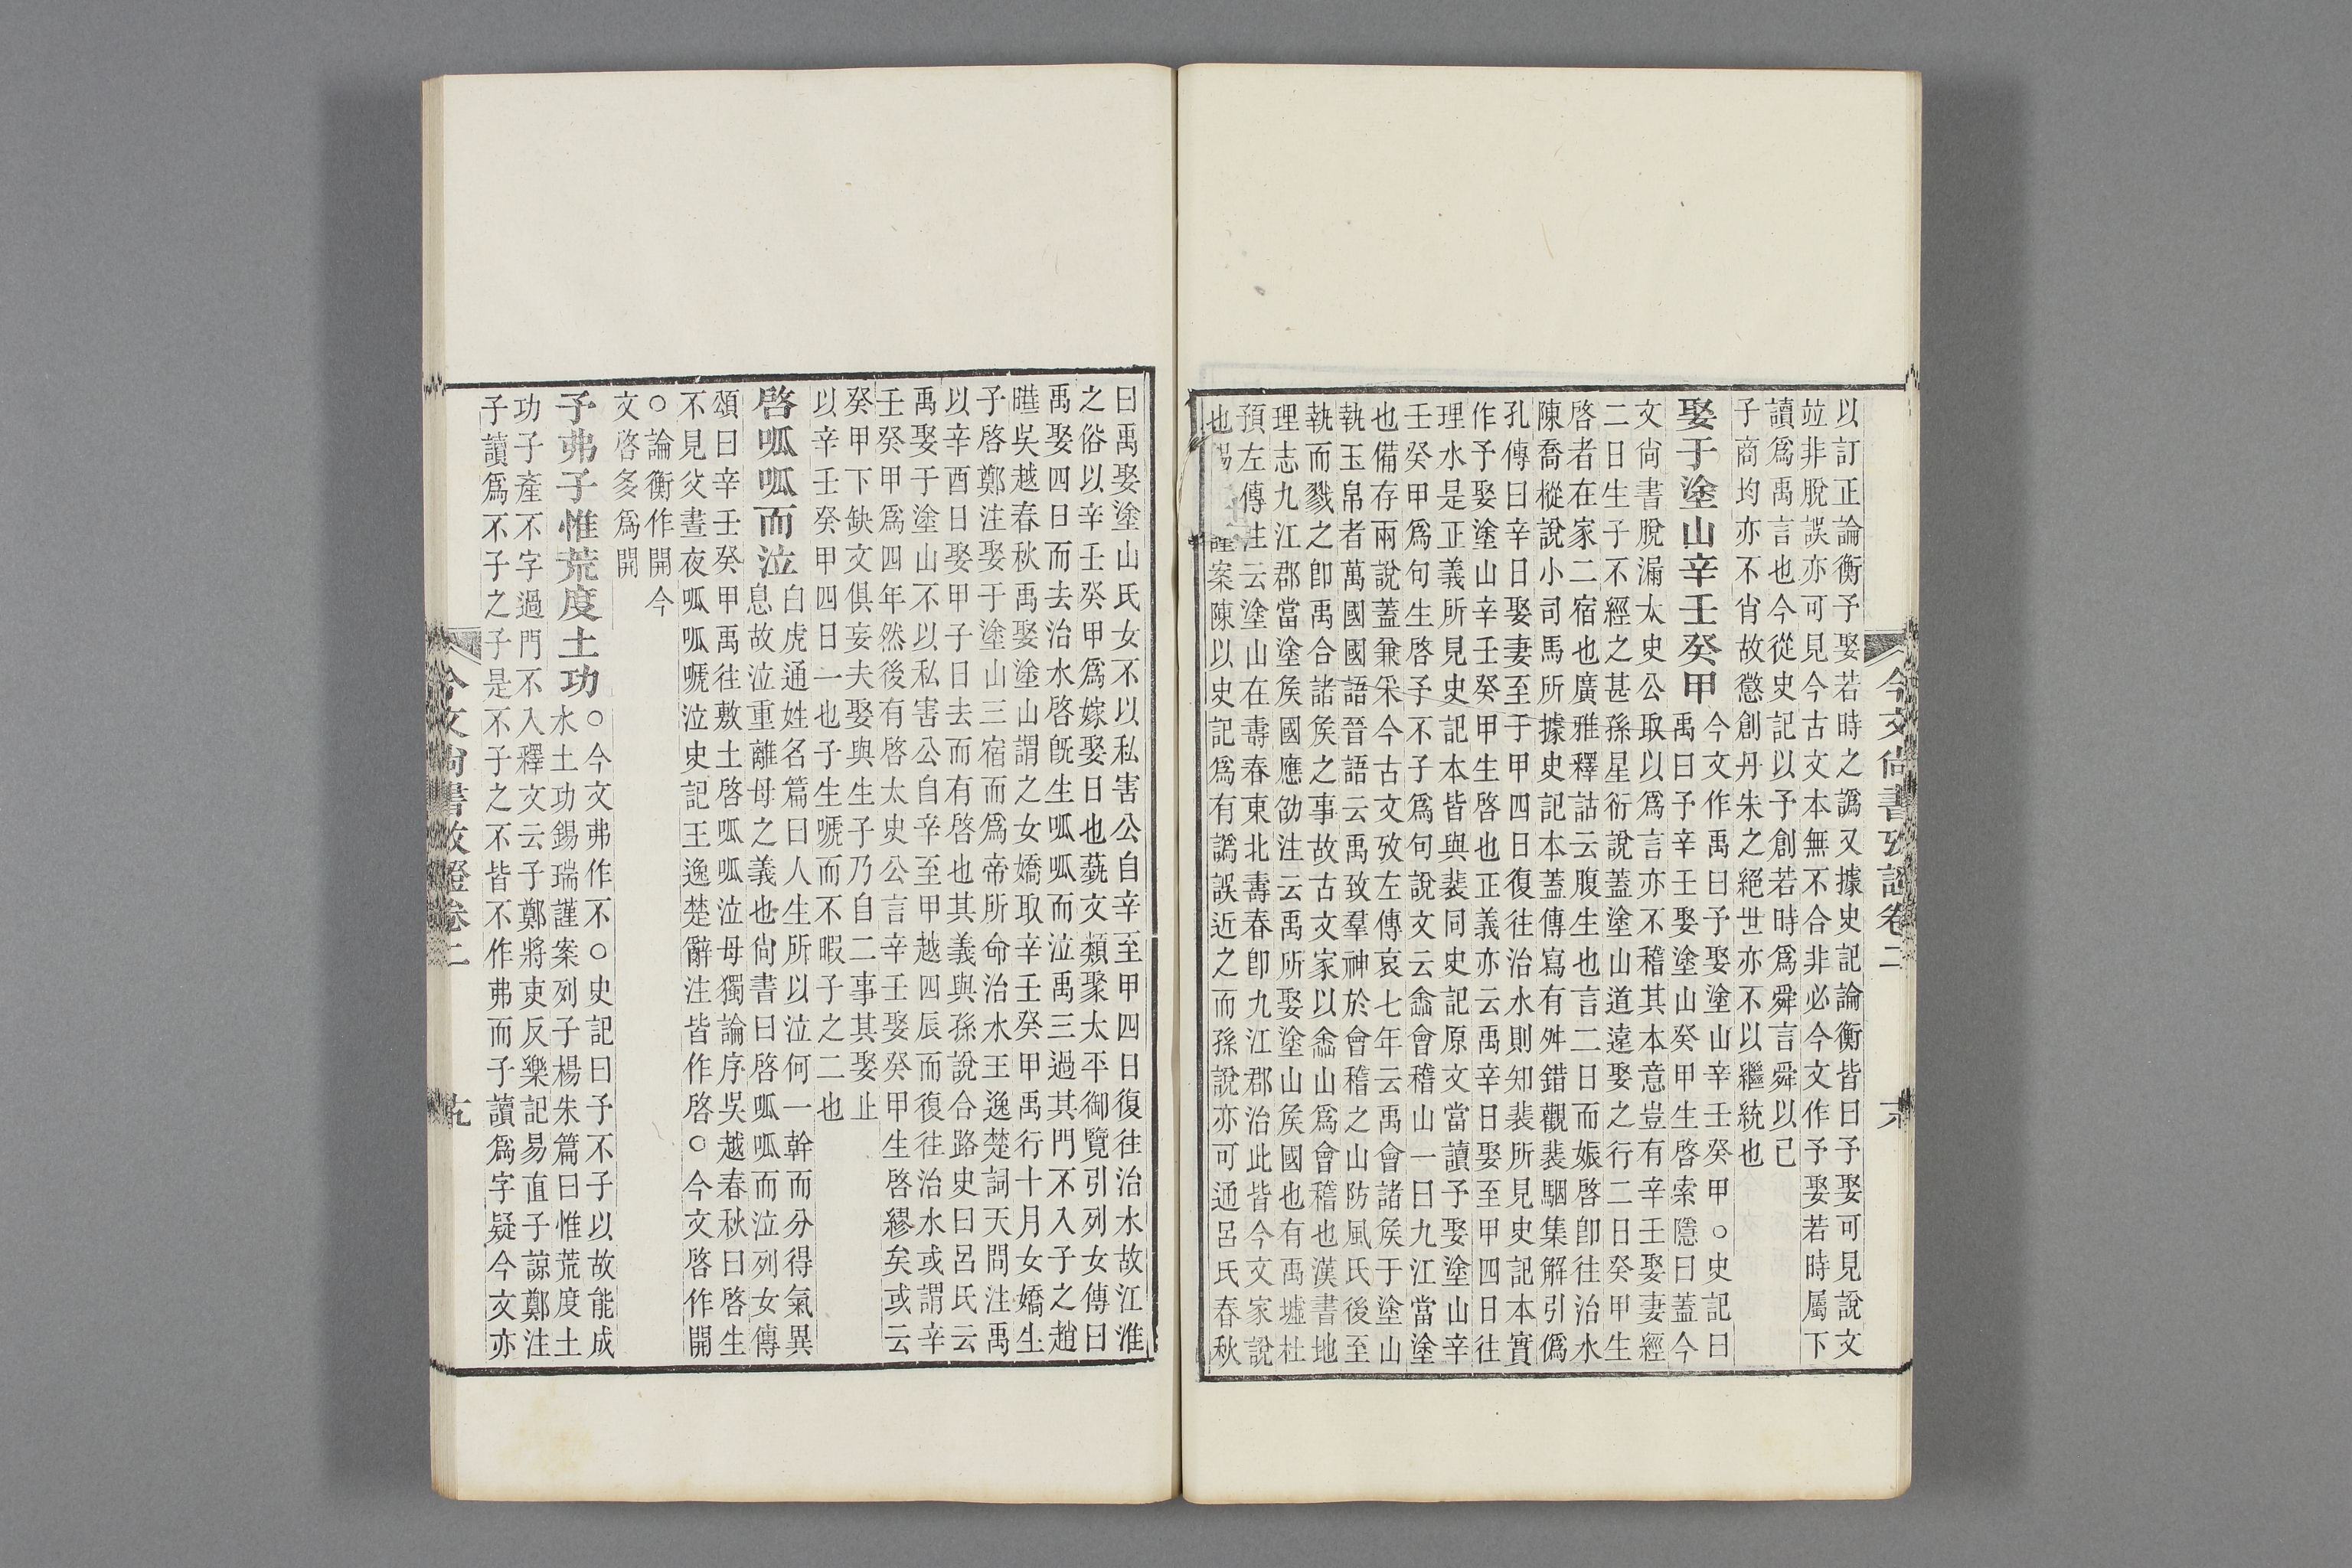 以訂正論衡予娶若時之譌又據史記論衡皆曰予娶可見說文
竝非脫誤亦可見今古文本無不合非必今文作予娶若時屬下
讀爲禹言也今從史記以予創若時爲舜言舜以己
子商均亦不肖故懲創丹朱之絕世亦不以繼統也
娶于塗山辛壬癸甲
今文作禹曰予娶塗山辛壬癸甲○史記曰
禹曰予辛壬娶塗山癸甲生啓索隱曰蓋今
文尙書脫漏太史公取以爲言亦不稽其本意豈有辛壬娶妻經
二日生子不經之甚孫星衍說蓋塗山道遠娶之行二日癸甲生
啓者在家二宿也廣雅釋詁云腹生也言二日而娠啓卽往治水
陳喬樅說小司馬所據史記本蓋傳寫有舛錯觀裴駰集解引僞
孔傳曰辛日娶妻至于甲四日復往治水則知裴所見史記本實
作予娶塗山辛壬癸甲生啓也正義亦云禹辛日娶至甲四日往
理水是正義所見史記本皆與裴同史記原文當讀予娶塗山辛
壬癸甲爲句生啓予不子爲句說文云嵞會稽山一曰九江當塗
也備存兩說蓋兼采今古文攷左傳哀七年云禹會諸矦于塗山
執玉帛者萬國國語晉語云禹致羣神於會稽之山防風氏後至
執而戮之卽禹合諸矦之事故古文家以嵞山爲會稽也漢書地
理志九江郡當塗矦國應劭注云禹所娶塗山矦國也有禹墟杜
預左傳注云塗山在壽春東北壽春卽九江郡治此皆今文家說
也錫 謹案陳以史記爲有譌誤近之而孫說亦可通呂氏春秋
今文尙書攷證卷二
大
曰禹娶塗山氏女不以私害公自辛至甲四日復往治水故江淮
之俗以辛壬癸甲爲嫁娶日也蓺文類聚太平御覽引列女傳曰
禹娶四日而去治水啓旣生呱呱而泣禹三過其門不入子之趙
曄吳越春秋禹娶塗山謂之女嬌取辛壬癸甲禹行十月女嬌生
子啓鄭注娶于塗山三宿而爲帝所命治水王逸楚詞天問注禹
以辛酉日娶甲子日去而有啓也其義與孫說合路史曰呂氏云
禹娶于塗山不以私害公自辛至甲越四辰而復往治水或謂辛
壬癸甲爲四年然後有啓太史公言辛壬娶癸甲生啓繆矣或云
癸甲下缺文俱妄夫娶與生子乃自二事其娶止
以辛壬癸甲四日一也子生嗁而不暇子之二也
啓呱呱而泣
白虎通姓名篇曰人生所以泣何一幹而分得氣異
息故泣重離母之義也尙書曰啓呱呱而泣列女傳
頌曰辛壬癸甲禹往敷土啓呱呱泣母獨論序吳越春秋曰啓生
不見父晝夜呱呱嗁泣史記王逸楚辭注皆作啓○今文啓作開
○論衡作開今
文啓多爲開
予弗子惟荒度土功
○今文弗作不○史記曰予不子以故能成
水土功錫瑞謹案列子楊朱篇曰惟荒度土
功子產不字過門不入釋文云子鄭將吏反樂記易直子諒鄭注
子讀爲不子之子是不子之不皆不作弗而子讀爲字疑今文亦
今文尙書攷證卷二